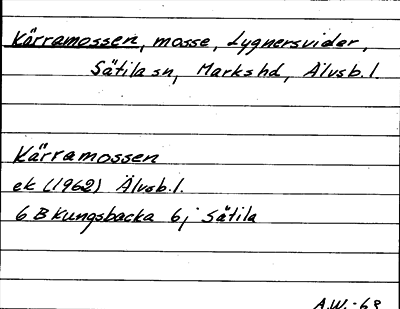 Kärramossen, mosse, Lygnersvider,
Sätila sn, Marks hd, Älvsb. l.
Kärramossen
ek (1962) Älvsb. l.
6 B Kungsbacka 6 j Sätila
A.W. -69